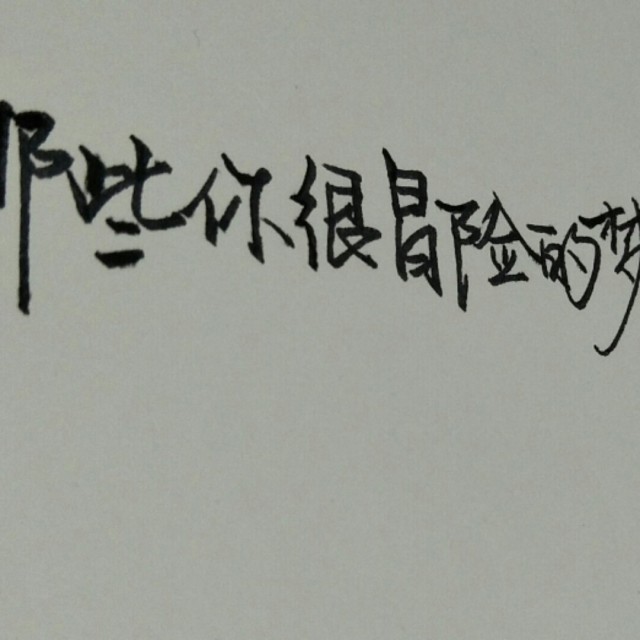 那些你很冒险的梦